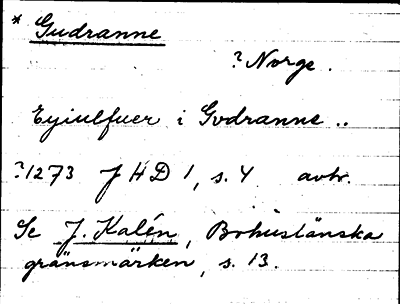 * Gudranne
? Norge.
Eyiulfuer i Gvdranne ..
?1273 J H D 1, s. 4 avtr.
Se J. Kalén, Bohuslänska
gränsmärken, s. 13.